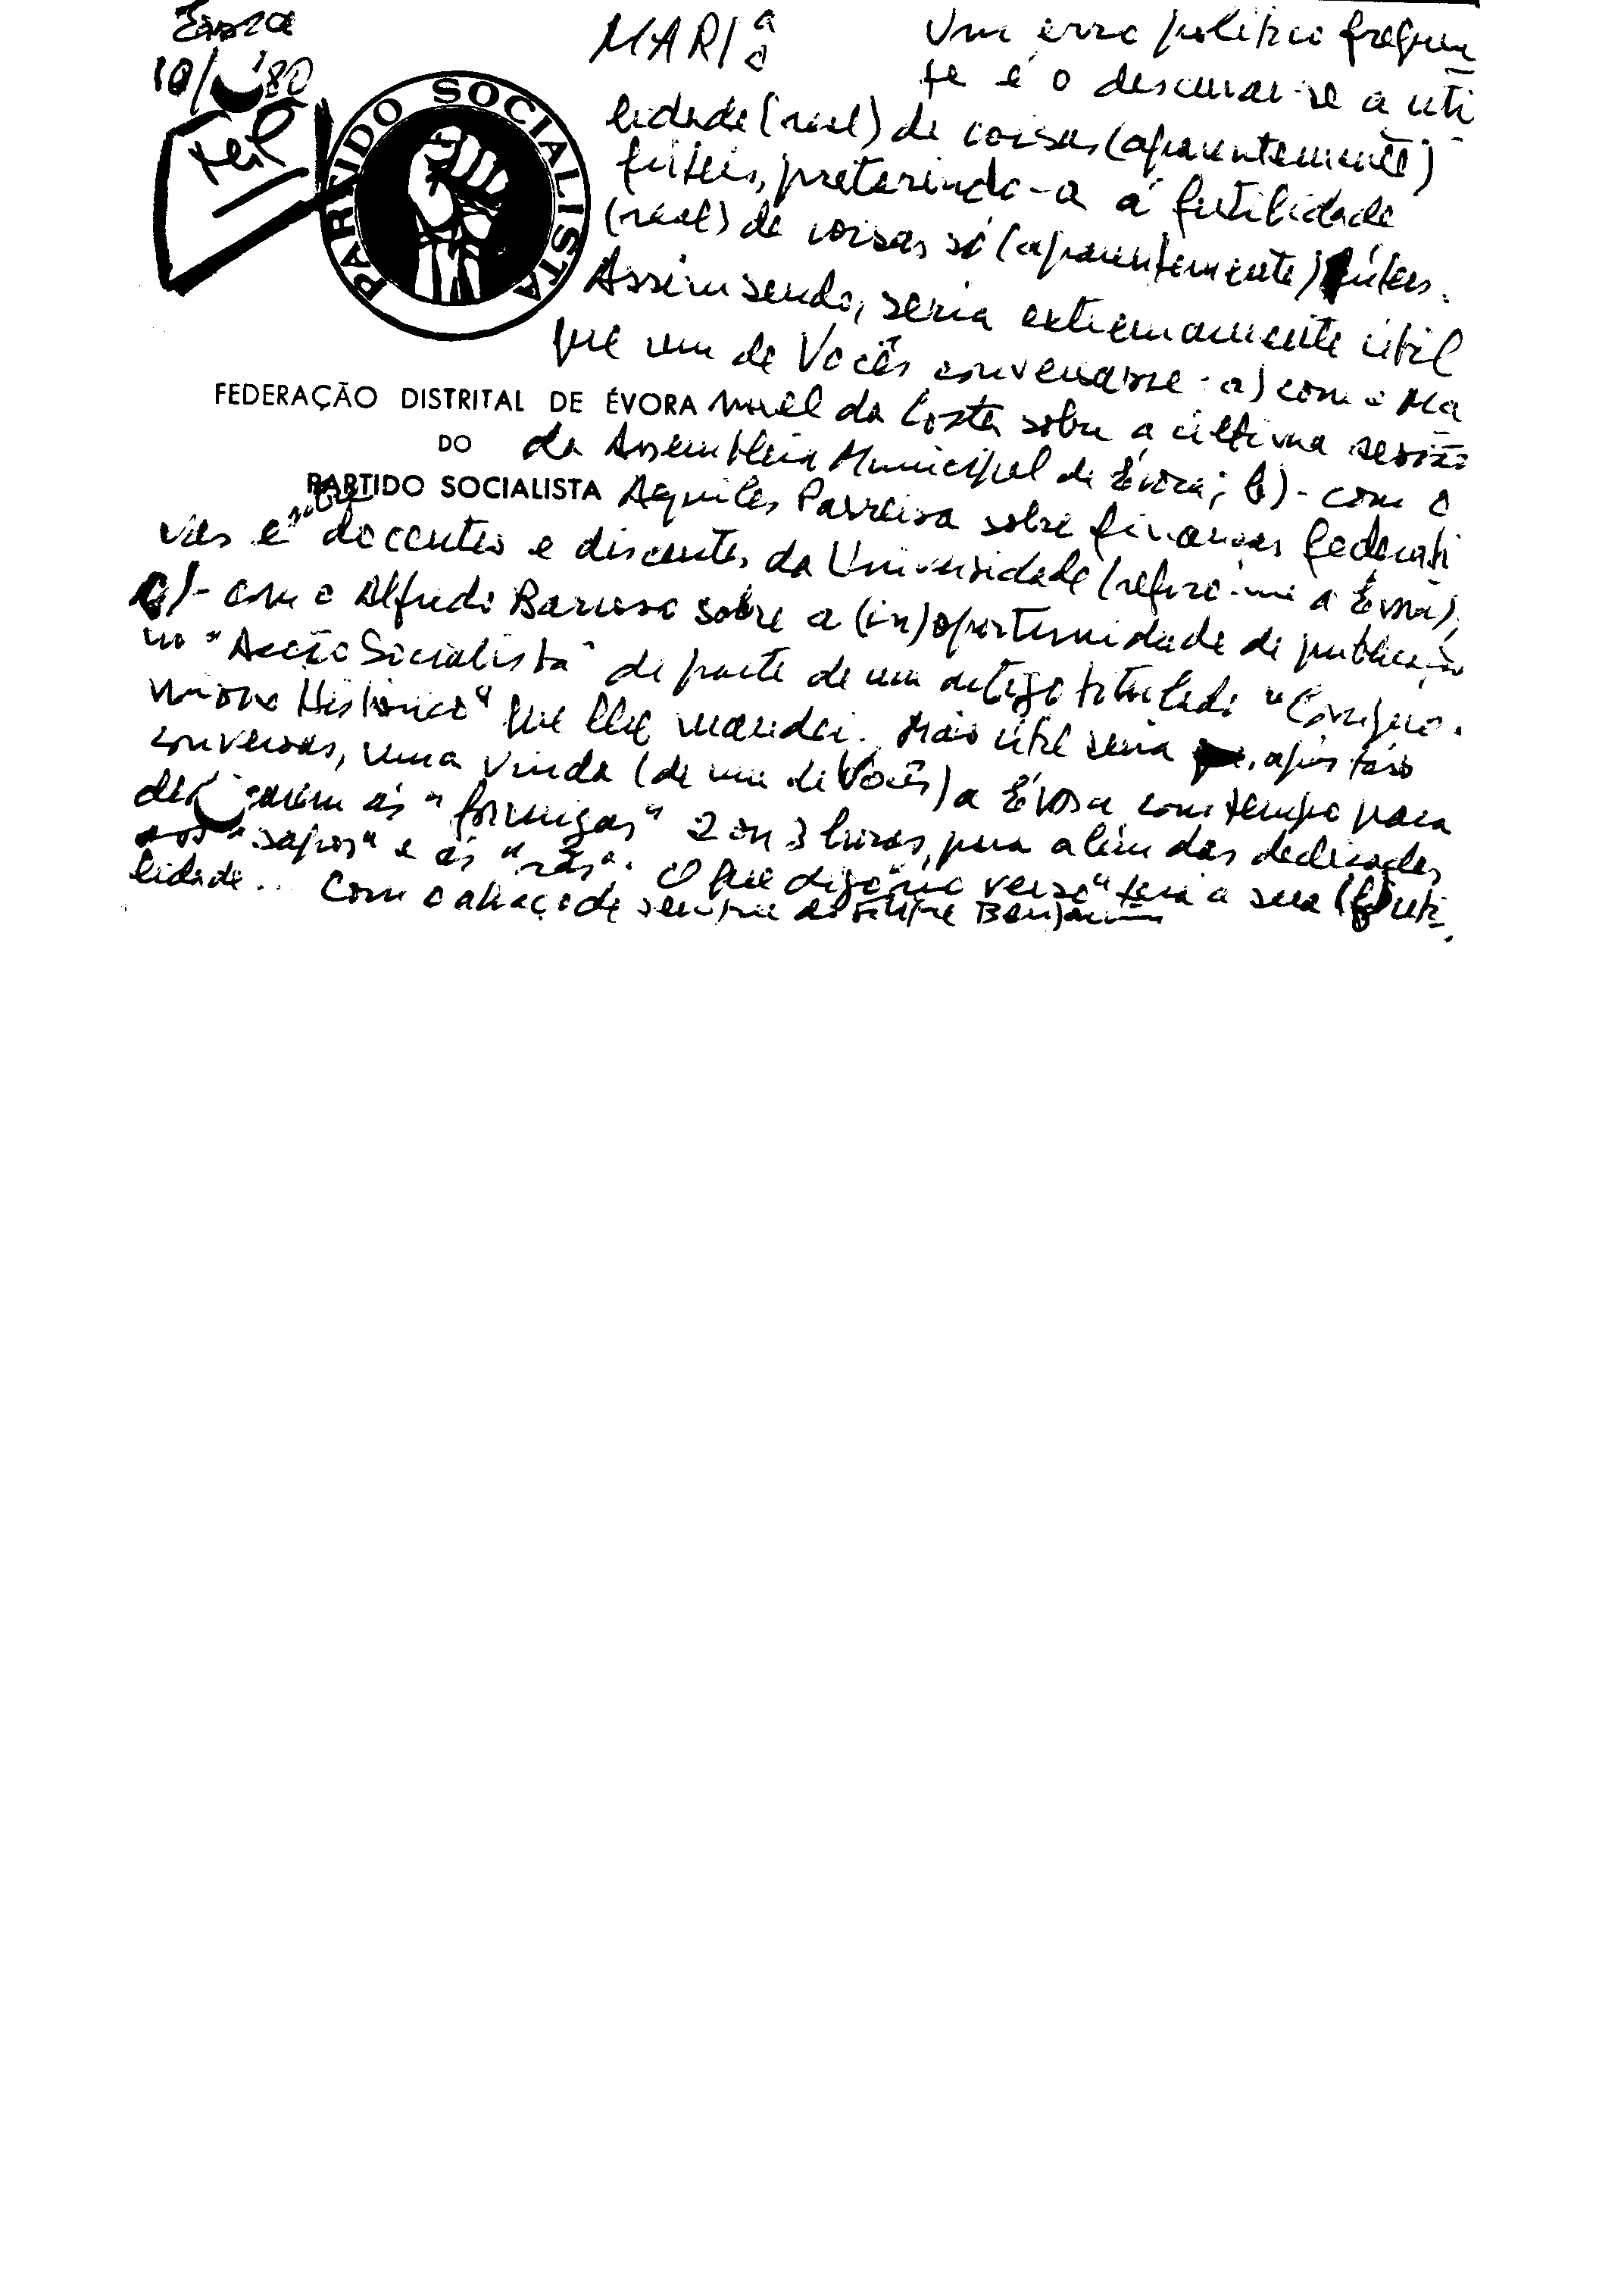 Évora
10/ '80
PARTIDO SOCIALISTA
FEDERAÇÃO DISTRITAL DE ÉVORA
DO
PARTIDO SOCIALISTA
MARIª
Um erro político frequen
te é o descurar-se a uti
lidade (real) de coisas (aparentemente)
fúteis, preterindo-a á futilidade
(real) de coisas só (aparentemente) úteis.
Assim sendo, seria extremamente útil
que um de Vocês conversasse: a) com o Ma
nuel da Costa sobre a última sessão
da Assembleia Municipal de Évora; b) - com o
Aquiles Parreira sobre finanças federati
vas e sobre docentes e discentes da Universidade (refiro-me a Évora);
c) - com o Alfredo Barroso sobre a (in)oportunidade de publicação
no "Acção Socialista" de parte de um artigo titulado "Compro-
misso Histórico" que lhe mandei. Mais útil seria, após tais
conversas, uma vinda (de um de Vocês) a Évora com tempo para
dedicarem ás "formigas" 2 ou 3 horas, para além das dedicadas
aos "sapos" e ás "rãs". O que digo "no verso" terá a sua (f)uti
lidade... Com o abraço de sempre do sempre Benjamim